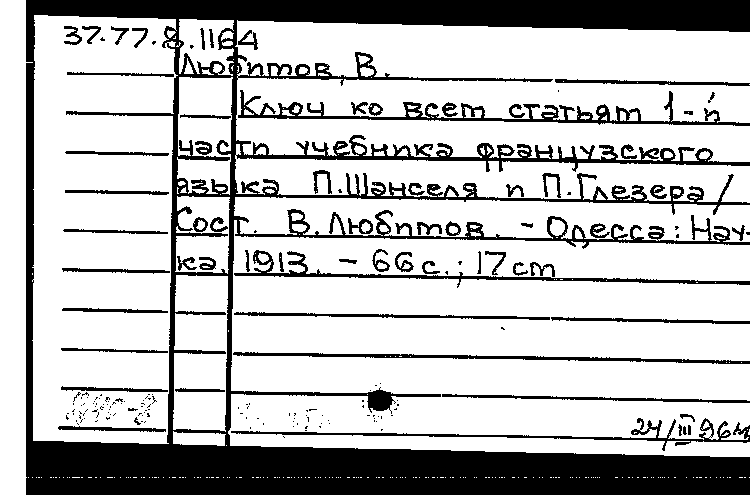 37.77.8.1164
Любимов, В.
Ключ ко всем статьям 1-й
части учебника французского
языка П.Шанселя и П.Глезера/
Сост. В.Любимов. - Одесса: Нау-
ка, 1913. - 66 с.; 17 cm
24/III 96